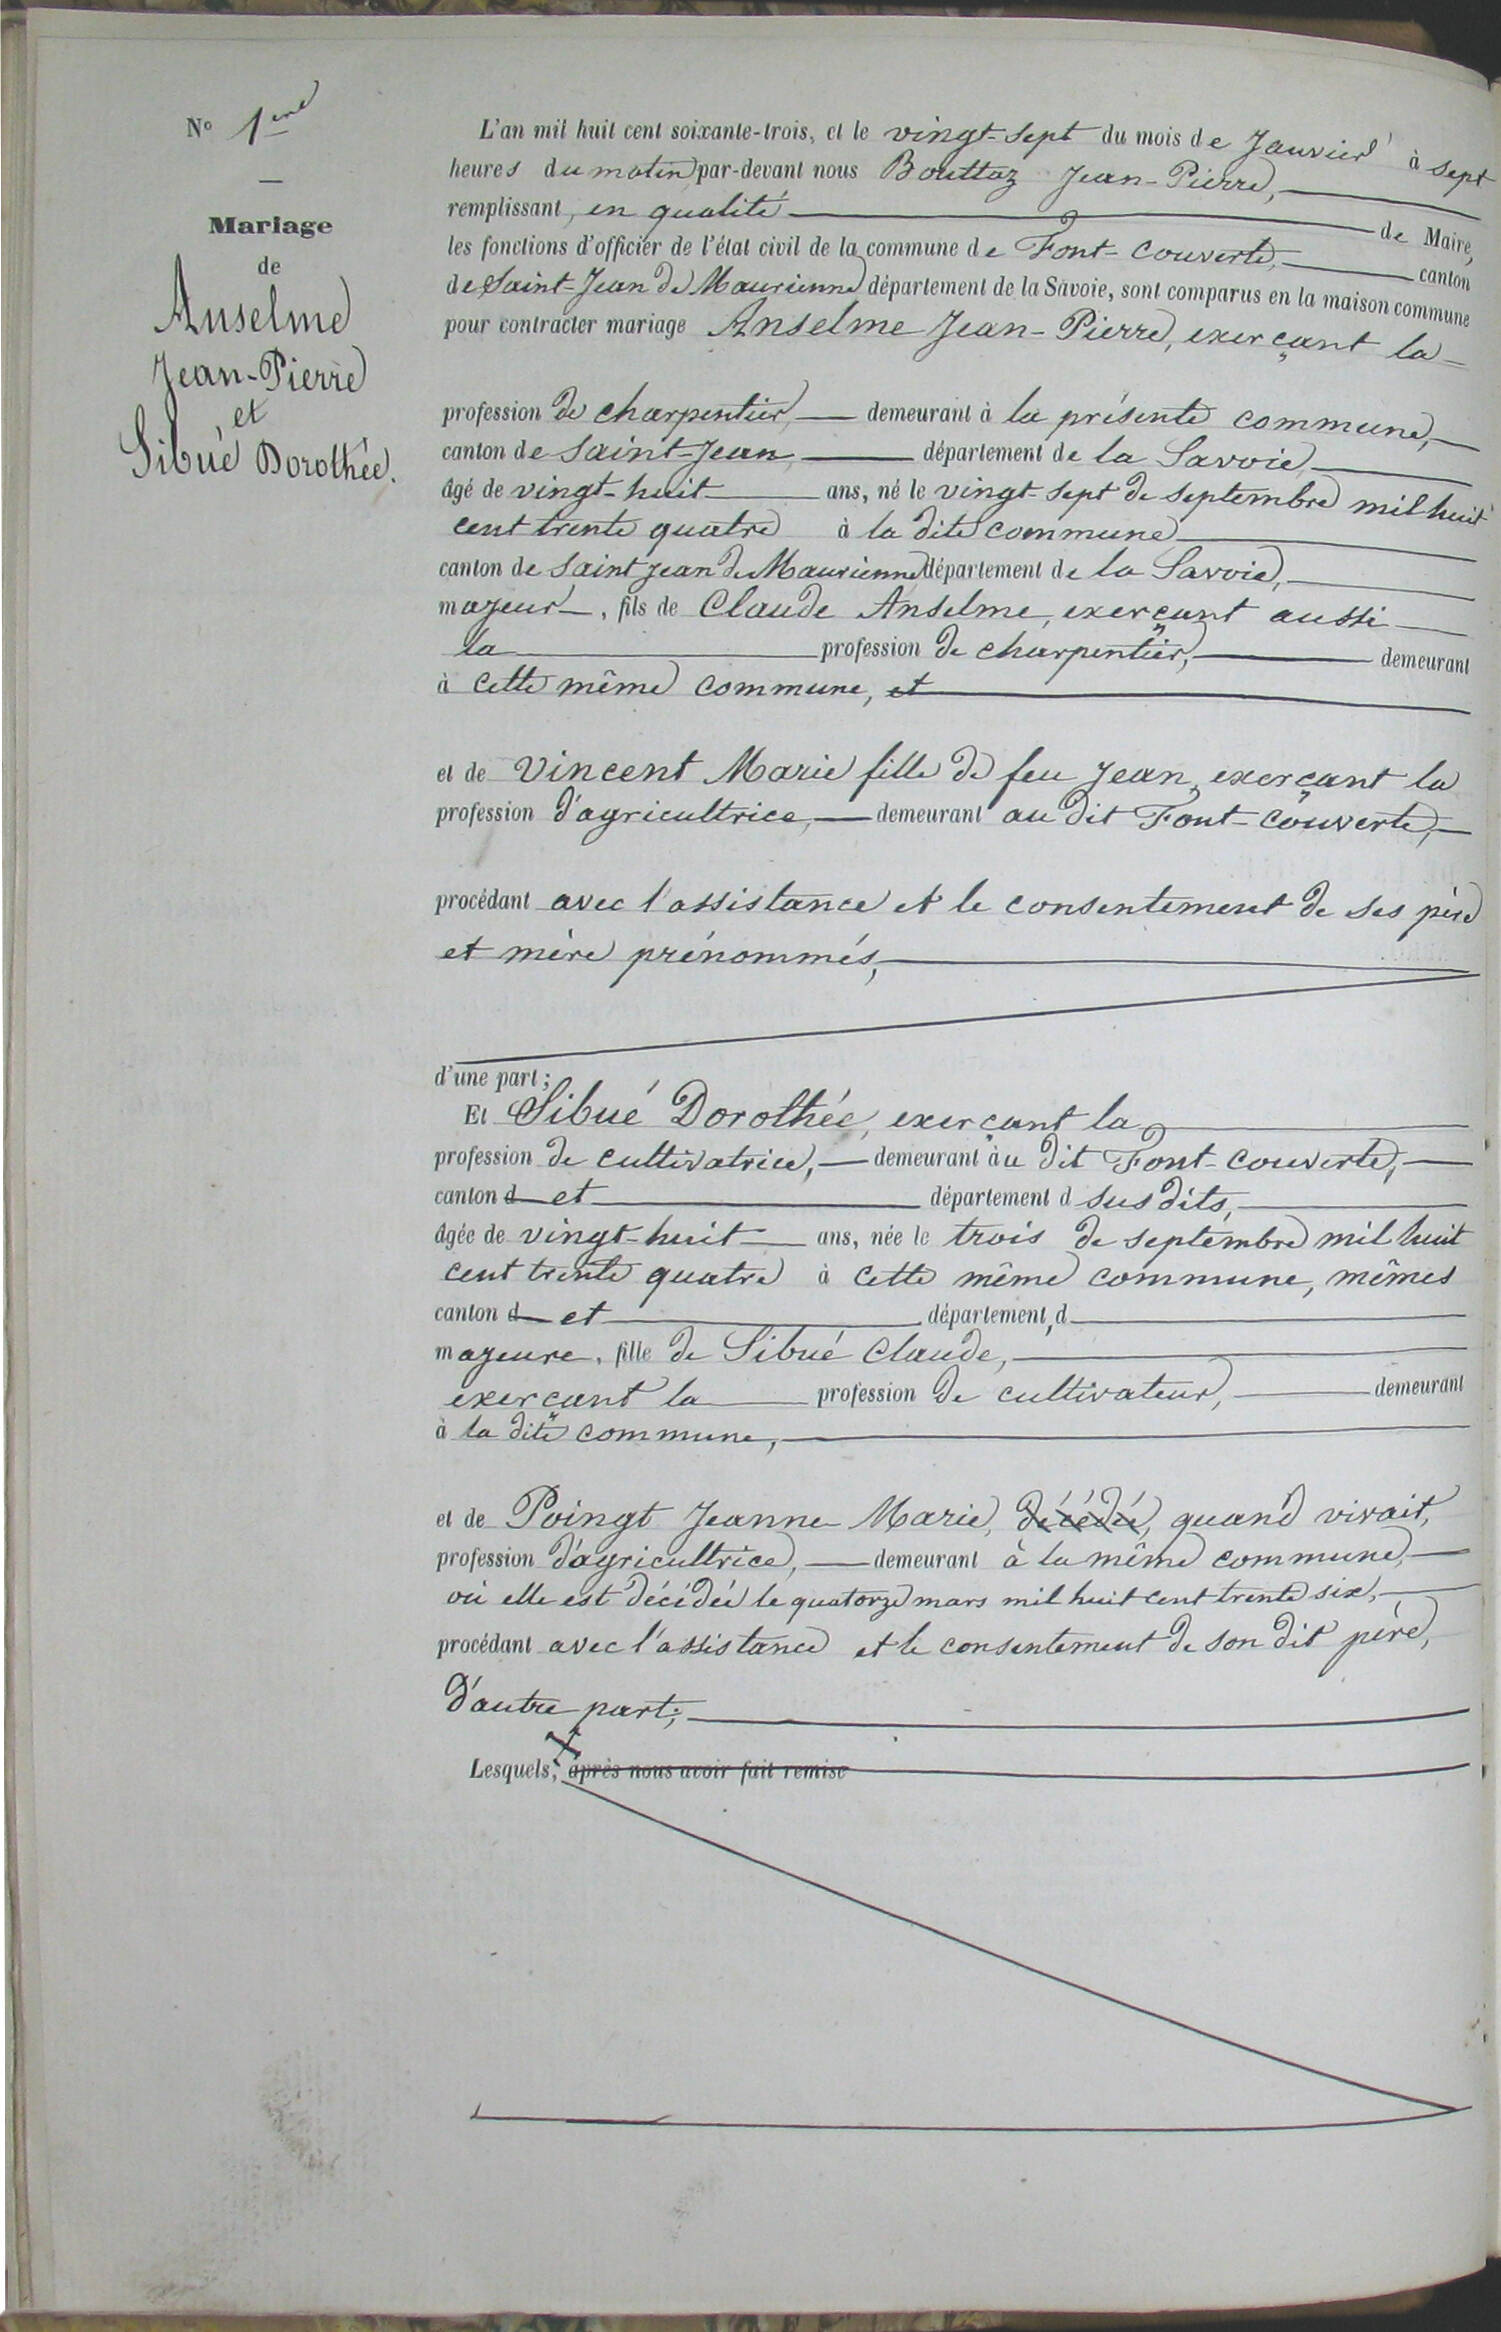 N° 1ere
Mariage
de
Anselme
Jean-Pierre
et
Sibué Dorothée.
L'an mil huit cent soixante-trois, et le vingt-sept du mois de Janvier à sept
heures du matin par-devant nous Bouttaz Jean-Pierre,
remplissant, en qualité de Maire,
les fonctions d'officier de l'état civil de la commune de Font-couverte, canton
de Saint-Jean de Maurienne département de la Savoie, sont comparus en la maison commune
pour contracter mariage Anselme Jean-Pierre, exerçant la
profession de charpentier, demeurant à la présente commune,
canton de Saint-Jean, département de la Savoie,
âgé de vingt-huit ans, né le vingt-sept de septembre mil huit
cent trente quatre à la dite commune
canton de Saint Jean de Maurienne département de la Savoie,
majeur, fils de Claude Anselme, exerçant aussi
la profession de charpentier, demeurant
à cette même commune, et
et de Vincent Marie fille de feu Jean, exerçant la
profession d'agricultrice, demeurant au dit Font-couverte,
procédant avec l'assistance et le consentement de ses père
et mère prénommés,
d'une part;
Et Sibué Dorothée, exerçant la
profession de cultivatrice, demeurant au dit Font-couverte,
canton d et département d susdits,
âgée de vingt-huit ans, née le trois de septembre mil huit
cent trente quatre à cette même commune, mêmes
canton d et département, d
majeure, fille de Sibué Claude,
exerçant la profession de cultivateur, demeurant
à la dite commune,
et de Poingt Jeanne Marie, décédée, quand vivait,
profession d'agricultrice, demeurant à la même commune,
où elle est décédée le quatorze mars mil huit cent trente six,
procédant avec l'assistance et le consentement de son dit père,
d'autre part;
Lesquels, après nous avoir fait remise